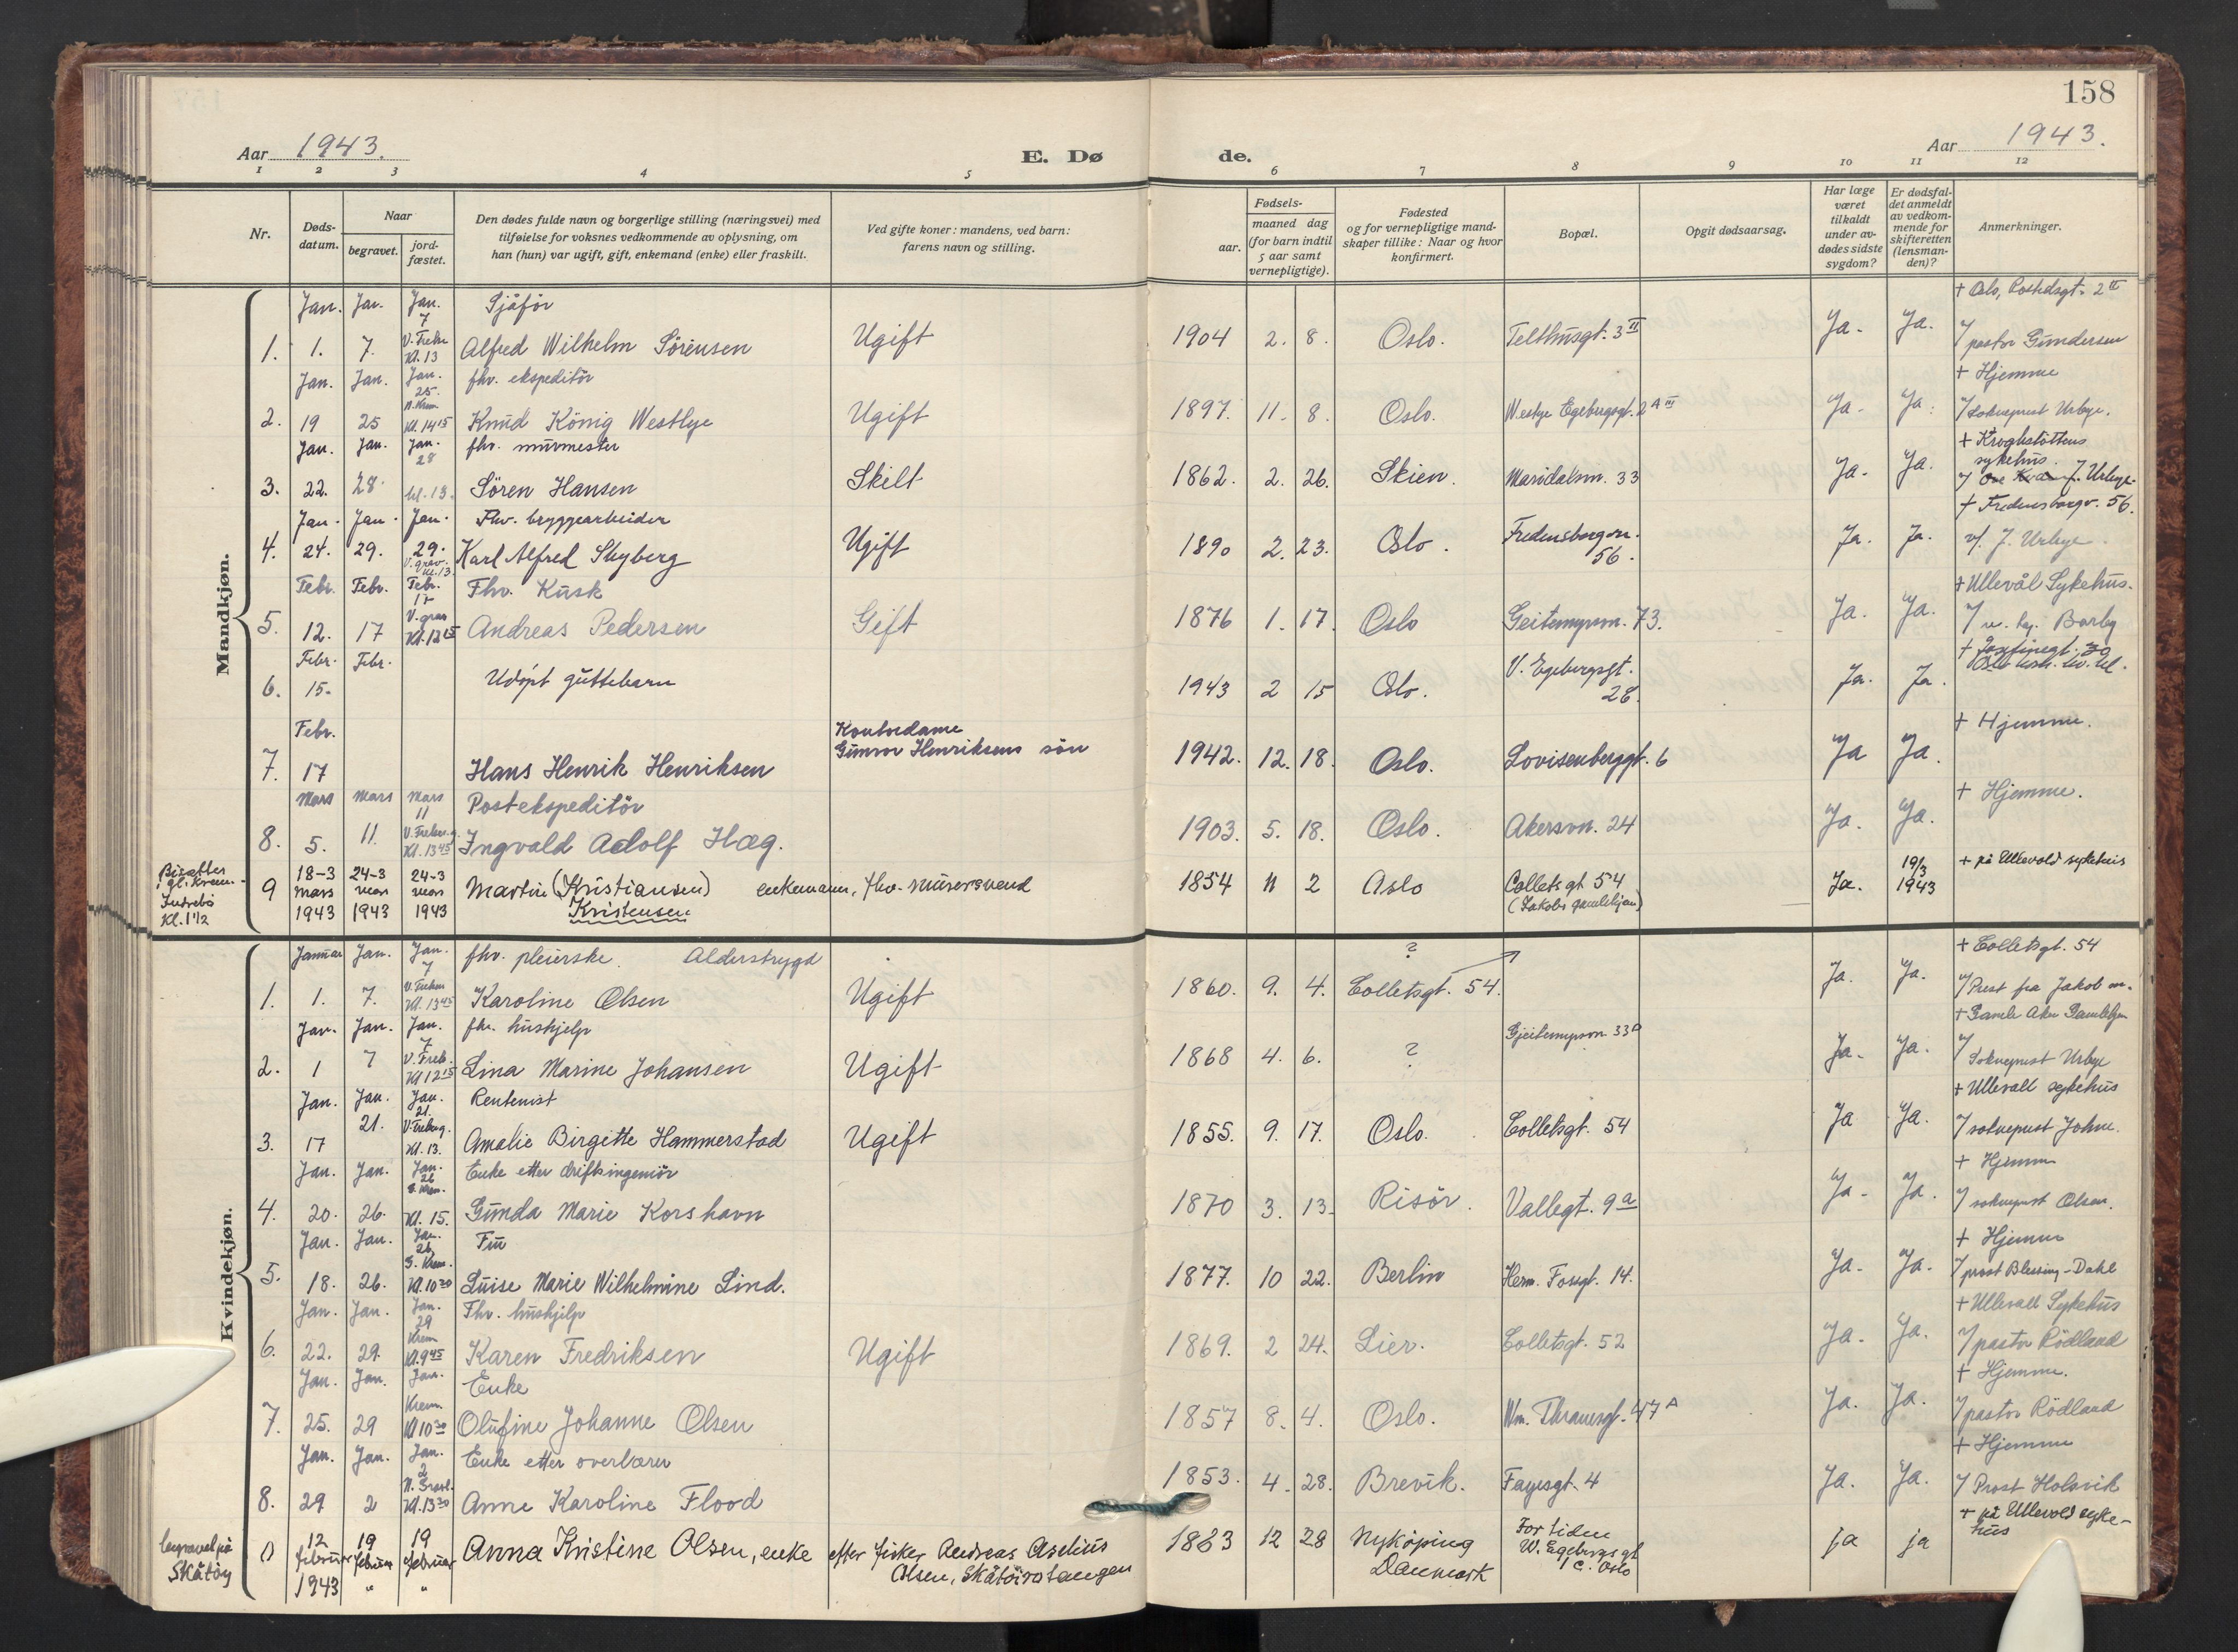 158
Aar 1943.
E. Dø
de.
Aar 1943.
1 2 3 4 5 6 7 8 9 10 11 12
Nr.
Døds-
datum.
Naar
begravet.
jord-
fæstet.
Den dødes fulde navn og borgerlige stilling (næringsvei) med
tilføielse for voksnes vedkommende av oplysning, om
han (hun) var ugift, gift, enkemand (enke) eller fraskilt.
Ved gifte koner: mandens, ved barn:
farens navn og stilling.
Fødsels-
aar.
maaned dag
(for barn indtil
5 aar samt
vernepligtige).
Fødested
og for vernepligtige mand-
skaper tillike: Naar og hvor
konfirmert.
Bopæl.
Opgit dødsaarsag.
Har læge
været
tilkaldt
under av-
dødes sidste
sygdom?
Er dødsfal-
det anmeldt
av vedkom-
mende for
skifteretten
(lensman-
den)?
Anmerkninger.
Mandkjøn.
Jan. Jan. Jan. Sjåför + Oslo, 2 II
7
1. 1. 7. Kl. 13 Alfred Wilhelm Sörensen Ugift 1904 2. 8. Oslo. Telthusgt. 3 II Ja. Ja. pastor Gundersen
Jan. Jan. Jan. fhv. ekspeditör + Hjemme
25.
2. 19 25 Kl. 14 15 Knud König Westlye Ugift 1897. 11. 8. Oslo. Westye Egebergsgt. 2 A III Ja. Ja. sokneprest Urbye.
Jan. Jan. Jan. fhv. murmester + Kroghstöttens
28 sykehus.
3. 22. 28. kl. 13. Sören Hansen Skilt 1862. 2. 26. Skien. Maridalsvn. 33 Ja. Ja. J. Urbye.
Jan. Jan. Jan. Fhv. bryggearbeider + Fredensborgv. 56.
4. 24. 29. 29. V. grav. kl. 13 Karl Alfred Skyberg Ugift 1890 2. 23. Oslo. Fredensborgvn. 56. Ja. Ja. v/ J. Urbye.
Febr. Febr. Febr. Fhv. Kusk + Ullevål Sykehus.
17
5. 12. 17 V. grav Kl. 12 15 Andreas Pedersen Gift 1876 1. 17. Oslo Geitemyrsvn. 73. Ja. Ja. Barby
Febr. Febr. + Josefinegt. 30
6. 15. Udöpt guttebarn 1943 2 15 Oslo. V. Egebergsgt. 28. Ja. Ja.
Febr. Kontordame + Hjemme.
7. 17 Hans Henrik Henriksen Gunvor Henriksens sön 1942. 12. 18. Oslo. Lovisenberggt. 6 Ja Ja.
Mars Mars Mars Postekspeditör + Hjemme.
11
8. 5. 11. Kl. 13 45 Ingvald Adolf Hæg. 1903. 5. 18. Oslo. Akersvn. 24 Ja. Ja.
Bisættes
gl. Krem.
Kl. 1 1/2
9 18-3 mars 1943 24-3 mars 1943 24-3 mars 1943 Martin (Kristiansen) enkemann, fhv. murersvend 1854 11 2 Oslo Colletsgt 54 Ja. 19/3 1943 + på Ullevold sykehus
Kristensen (Jakobs gamlehjem)
Kvindekjøn.
Januar Jan. Jan. fhv. pleierske. Alderstrygd ? + Colletsgt. 54
7
1. 1. 7. Kl. 13 45 Karoline Olsen Ugift 1860. 9. 4. Colletsgt. 54. Ja. Ja. Prest fra Jakob m.
Jan. Jan. Jan. fhv. hushjelp + Gamle Aker Gamlehjem
7
2. 1 7 Kl 12 15 Lina Marine Johansen Ugift 1868 4. 6. ? Gjeitemyrsvn. 33 Ja. Ja. Sokneprest Urbye
Jan. Jan. Jan. Rentenist + Ullevall sykehus
21.
3. 17 21. Kl. 13. Amalie Birgitte Hammerstad Ugift 1855. 9. 17. Oslo. Colletsgt. 54 Ja Ja. sokneprest Johns.
Jan. Jan. Jan. Enke etter driftsingeniör + Hjemme
26
4. 20. 26. Kl. 15. Gunda Marie Korshavn 1870 3. 13. Risör. Vallegt. 9a Ja. Ja. sokneprest Olsen.
Jan. Jan. Jan. Fru + Hjemme
26
5. 18. 26. Kl. 10 30 Luise Marie Wilhelmine Lind. 1877. 10 22. Berlin Herm. Fossgt. 14. Ja. Ja. prost Blessing-Dahl
Jan. Jan. Jan. Fhv. hushjelp + Ullevall Sykehus
29
6. 22. 29. Krem Kl. 9 45 Karen Fredriksen Ugift 1869. 2 24. Lier. Colletsgt. 52 Ja. Ja. pastor Rödland
Jan. Jan. Jan. Enke + Hjemme.
7. 25. 29 Krem. Kl 10 30 Olufine Johanne Olsen 1857 8. 4. Oslo. Wm. Thranesgt. 47 A Ja. Ja. pastor Rödland
Jan. Jan. Jan. Enke etter overlærer + Hjemme
2
8. 29 2 Kl. 13 30 Anne Karoline Flood 1853. 4. 28. Brevik. Fayesgt. 4 Ja. Ja. Prost Holsvik
begravet på
Skåtöy
0 12 februar 1943 19 februar " 19 februar " Anna Kristine Olsen, enke efter fisker Andreas Aselius Olsen, Skåtöirstangen 1863 12 28 Nyköping Danmark For tiden W. Egebergs gt 1 C. Oslo ja ja + på Ullevold sykehus